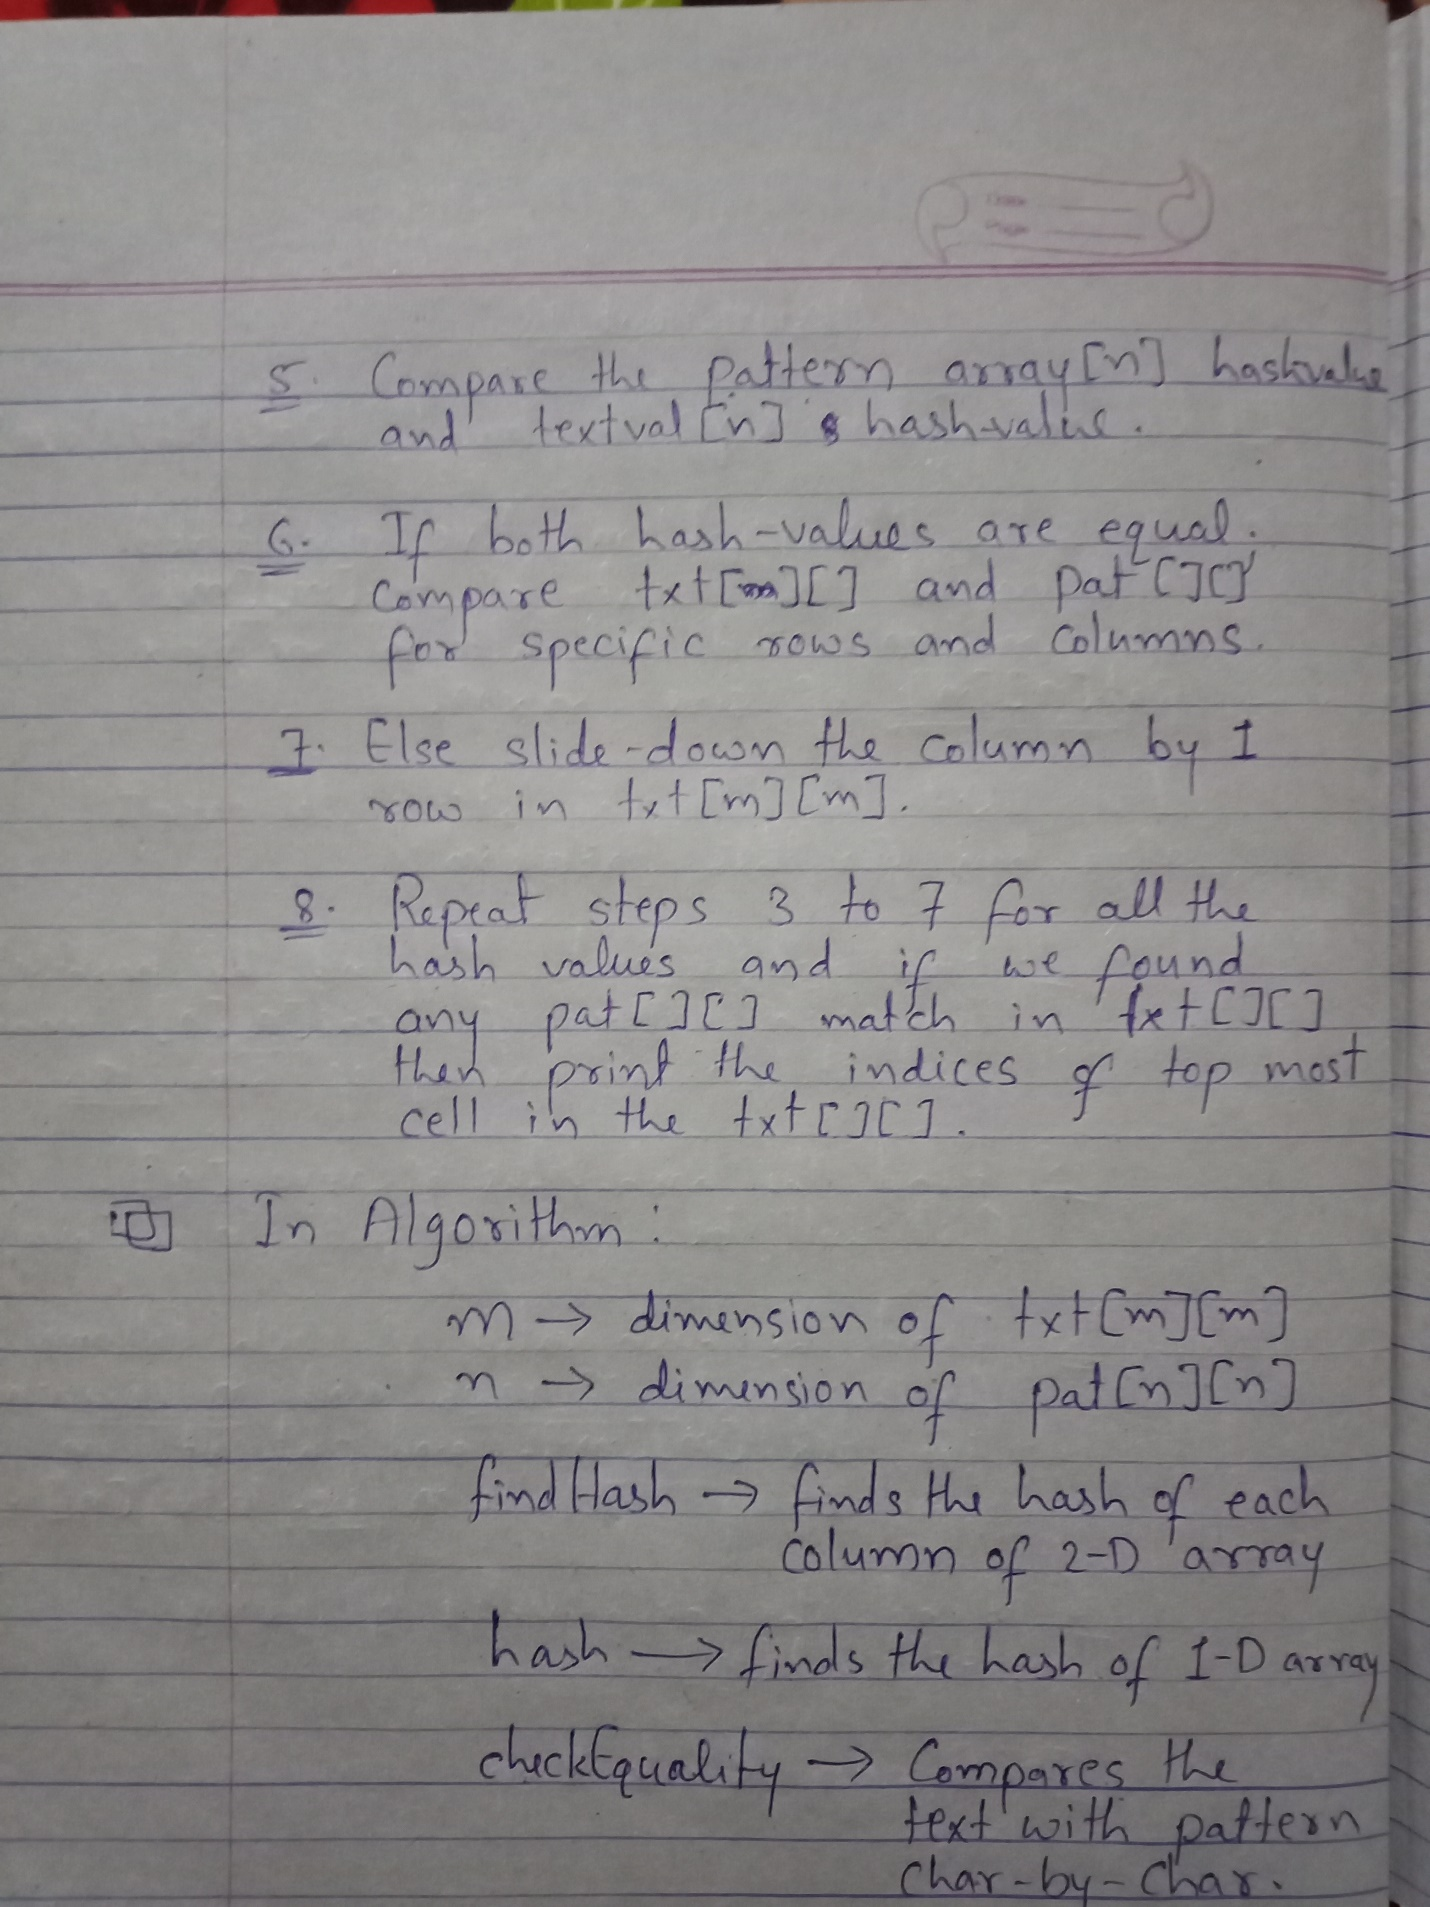 5. Compare the pattern array[n] hashvalue
and textval[n]'s hash-value.
6. If both hash-values are equal.
Compare txt[m][] and pat[][]
for specific rows and columns.
7. Else slide-down the column by 1
row in txt[m][m].
8. Repeat steps 3 to 7 for all the
hash values and if we found
any pat[][] match in txt[][]
then print the indices of top most
cell in the txt[][].
In Algorithm:
m → dimension of txt[m][m]
n → dimension of pat[n][n]
findHash → finds the hash of each
column of 2-D array
hash → finds the hash of 1-D array
checkEquality → Compares the
text with pattern
char-by-char.